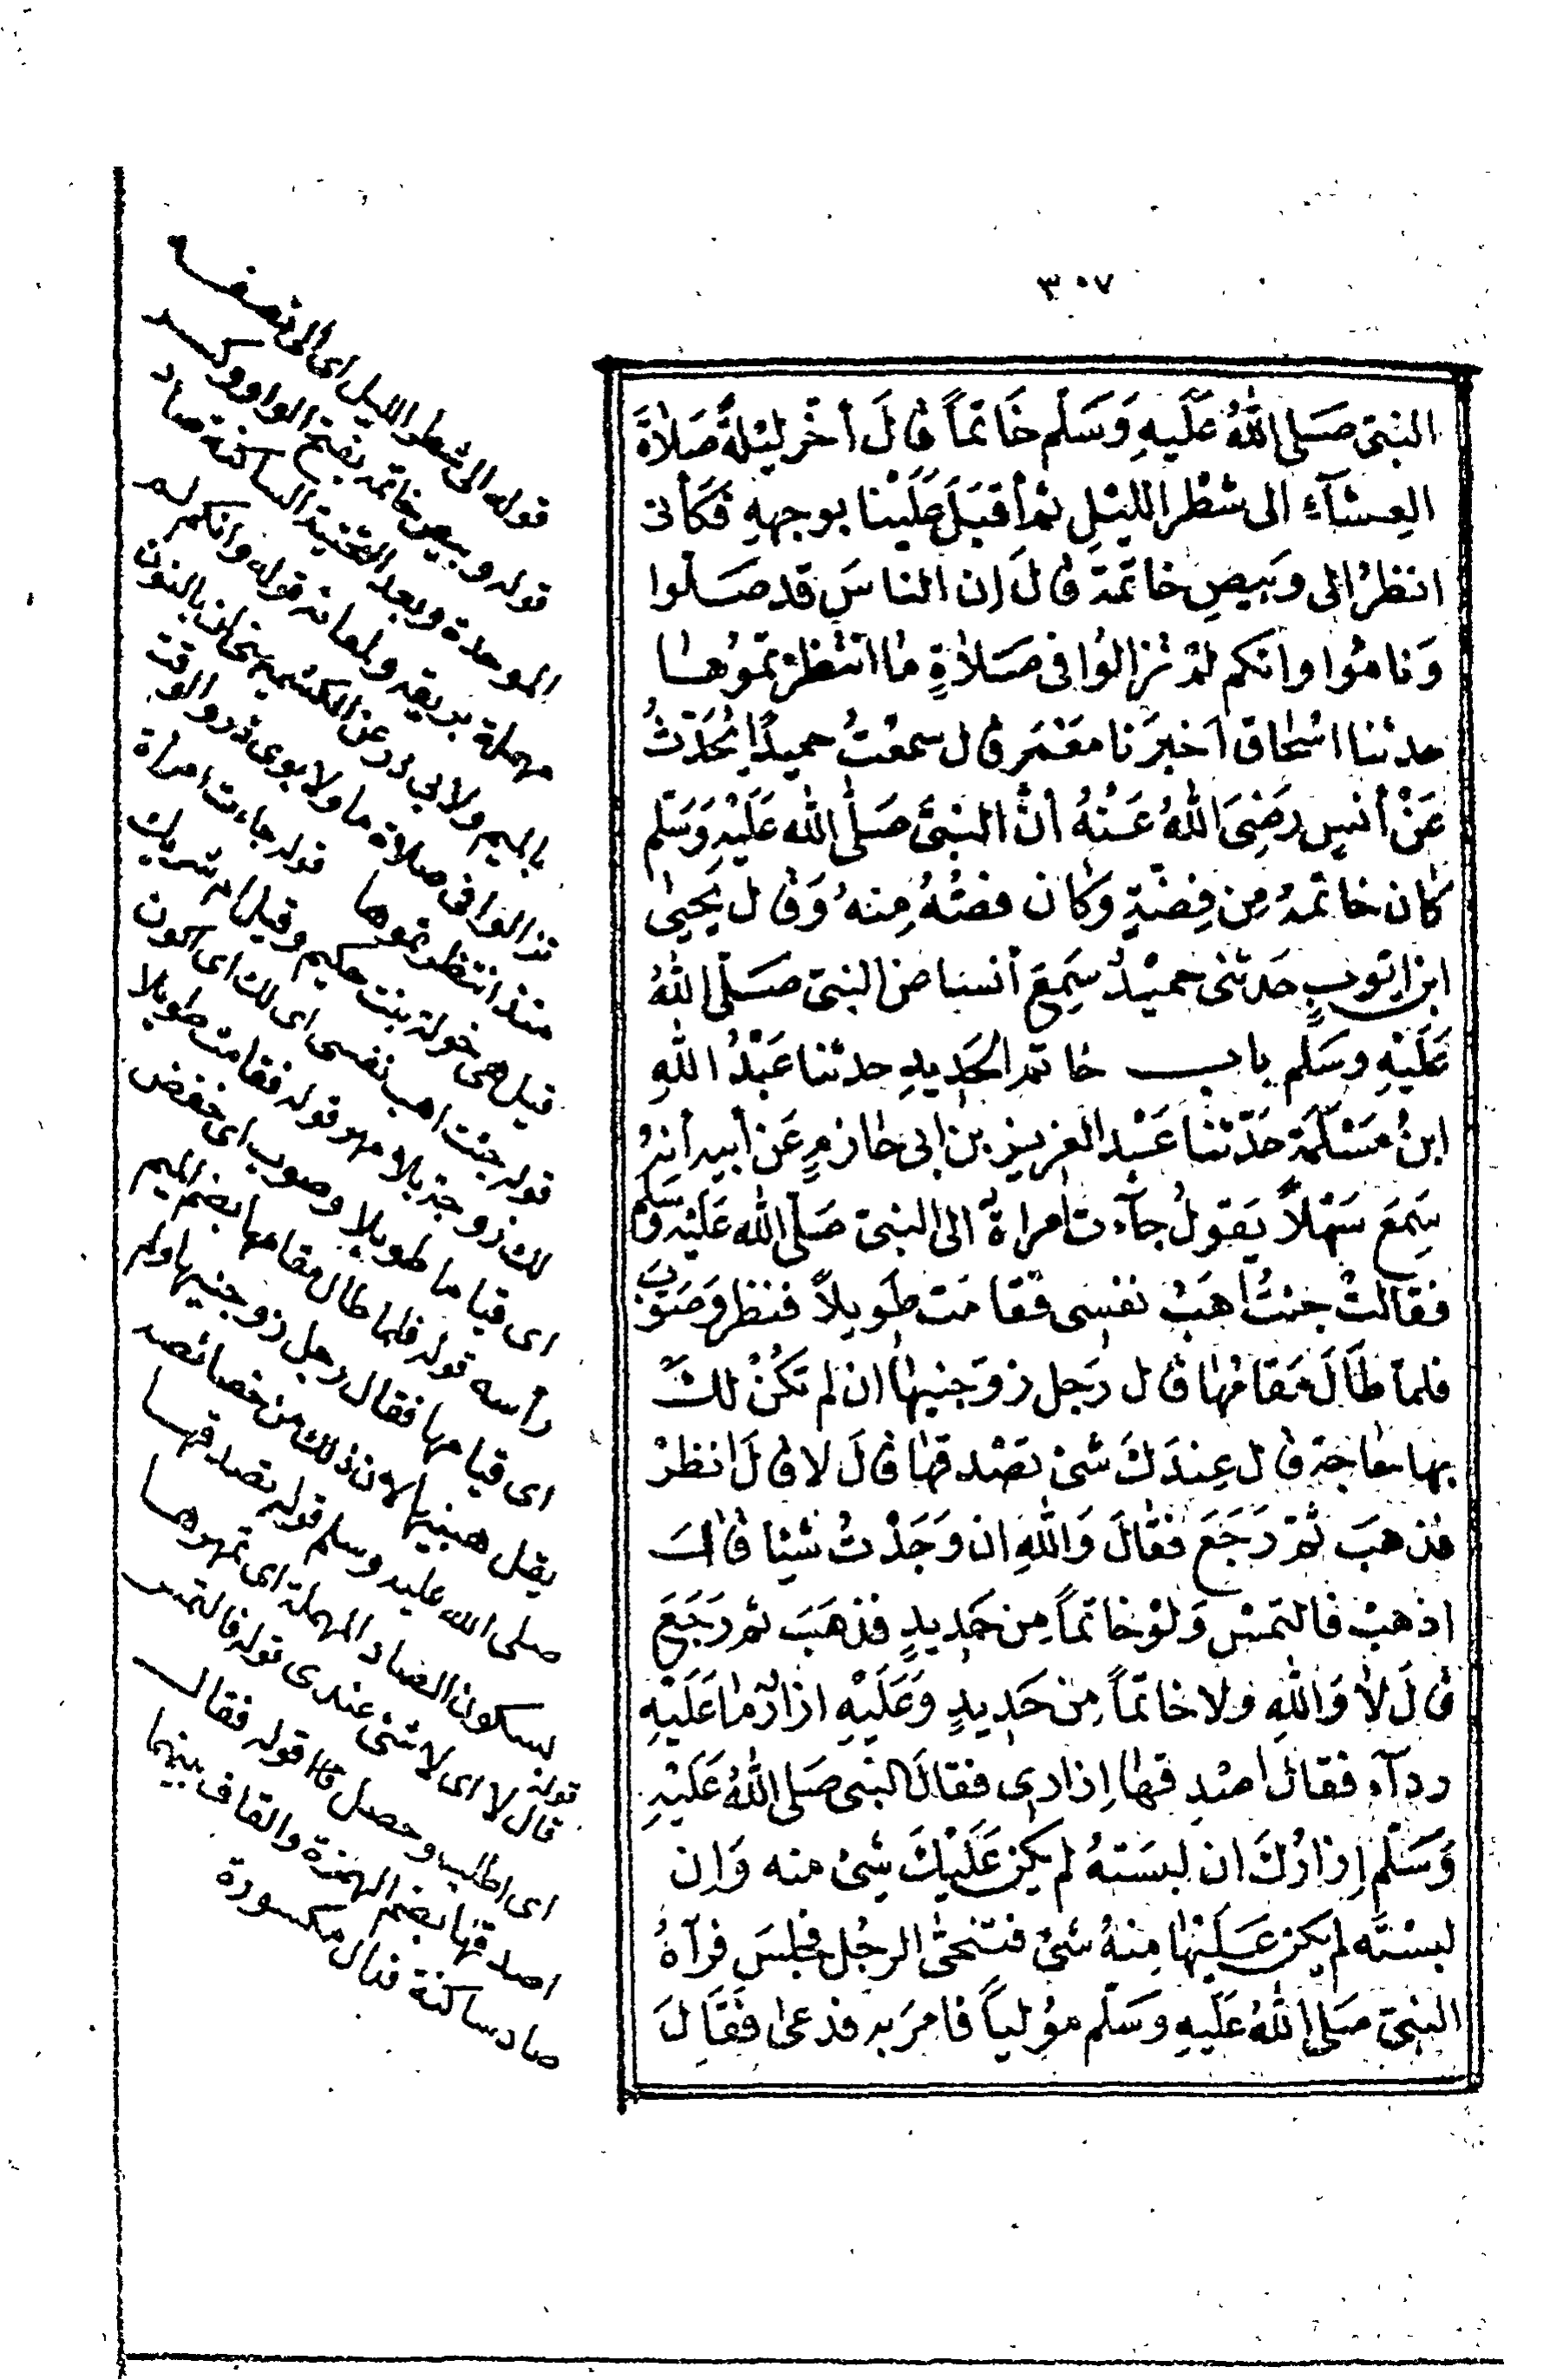 ٣٠٧
النبي صَلى اللهُ عَلَيهِ وَسَلم خَاتماً قالَ أخَّر ليْلةً صَلاةَ
العِشآءِ الى شطْر الليْلِ ثم أقبَلَ عَلَيْنا بوجههِ فكَأني
انظرُ الى وَبيصِ خاتمهِ قالَ إن الناسَ قد صَلوا
وَنامُوا وانكم لمْ تزالوُا في صَلاةٍ مَا انتظرْتموُهَا
حدثنا اسْحاق اخبرَنا معْتمر قال سمعْتُ حميدًا يُحَدّثُ
عَنْ أنسٍ رَضِيَ اللهُ عَنْهُ أنَّ النبيَّ صَلَّى الله عَلَيْهِ وَسَلّم
كَان خاتمهُ مِن فِضةٍ وَكان فصُّهُ مِنهُ وَقال يَحيى
ابن ايوبٍ حَدثني حميْدٌ سَمِعَ أنسا عن النبي صَلّى اللهُ
عَلَيْهِ وسَلم باب خاتم الحَديدِ حدثنا عَبْدُ اللهِ
ابنُ مَسْلَمة حَدّثنا عَبْد العزيز بن ابي حازمٍ عَن أبيه أنهُ
سَمِعَ سَهْلاً يَقولُ جآءت امراةٌ الى النبي صَلّى الله عَلَيْه وَسَلم
فقالتْ جئتُ اهَبُ نفسِي فقامَت طَويلاً فنظر وَصَوَّبَ
فلما طَالَ مَقامُها قال رَجل زوّجنيها ان لم تكُنْ لكَ
بها حاجة قال عِندَكَ شئ تصْدقها قالَ لا قالَ انظرْ
فذهبَ ثمّ رَجَعَ فقالَ وَاللهِ ان وَجَدْتُ شيئا قالَ
اذهبْ فالتمسْ وَلوْ خاتماً مِن حَديدٍ فذهَبَ ثم رَجَعَ
قالَ لا وَاللهِ ولا خاتماً مِن حَديدٍ وَعَلَيْهِ ازارٌ مَا عَلَيْهِ
ردآء فقال اصْدِقها إزاري فقالَ النبي صَلى اللهُ عَلَيْهِ
وَسَلّم إزارُكَ ان لبسَتهُ لم يكن عَلَيْكَ شئ منه وَإن
لبسْتَه لم يكن عَلَيْهَا مِنهُ شئ فتنحَّى الرجُل فجلسَ فرآهُ
النبيّ صَلى اللهُ عَلَيهِ وَسَلّم مُوَلياً فامرَ به فدعيَ فقَالَ
قوله الى شطر الليل اى الى نصفه
قوله وبيص خاتمه بفتح الواو وكسر
الموحدة وبعد التحتية الساكنة صاد
مهملة بريقه ولمعانه قوله وانكم لم
بالميم ولابي ذر عن الكشميهني لن بالنون
تزالوا في صلاة ما ولابوي ذر والوقت
منذ انتظرتموها قوله جاءت امراة
قيل هي خولة بنت حكيم وقيل ام شريك
قوله جئت اهب نفسي اى لك اى اكون
لك زوجة بلا مهر قوله فقامت طويلا
اى قياما طويلا وصوب اى خفض
رأسه قوله فلما طال مقامها بضم الميم
اى قيامها فقال رجل زوجنيها ولم
يقل هبنيها لان ذلك من خصائصه
صلى الله عليه وسلم قوله تصدقها
بسكون الصاد المهملة اى تمهرها
قوله قال لا اى لا شئ عندي قوله فالتمس
اى اطلب وحصل قوله فقال
اصدقها بضم الهمزة والقاف بينهما
صاد ساكنة فدال مكسورة